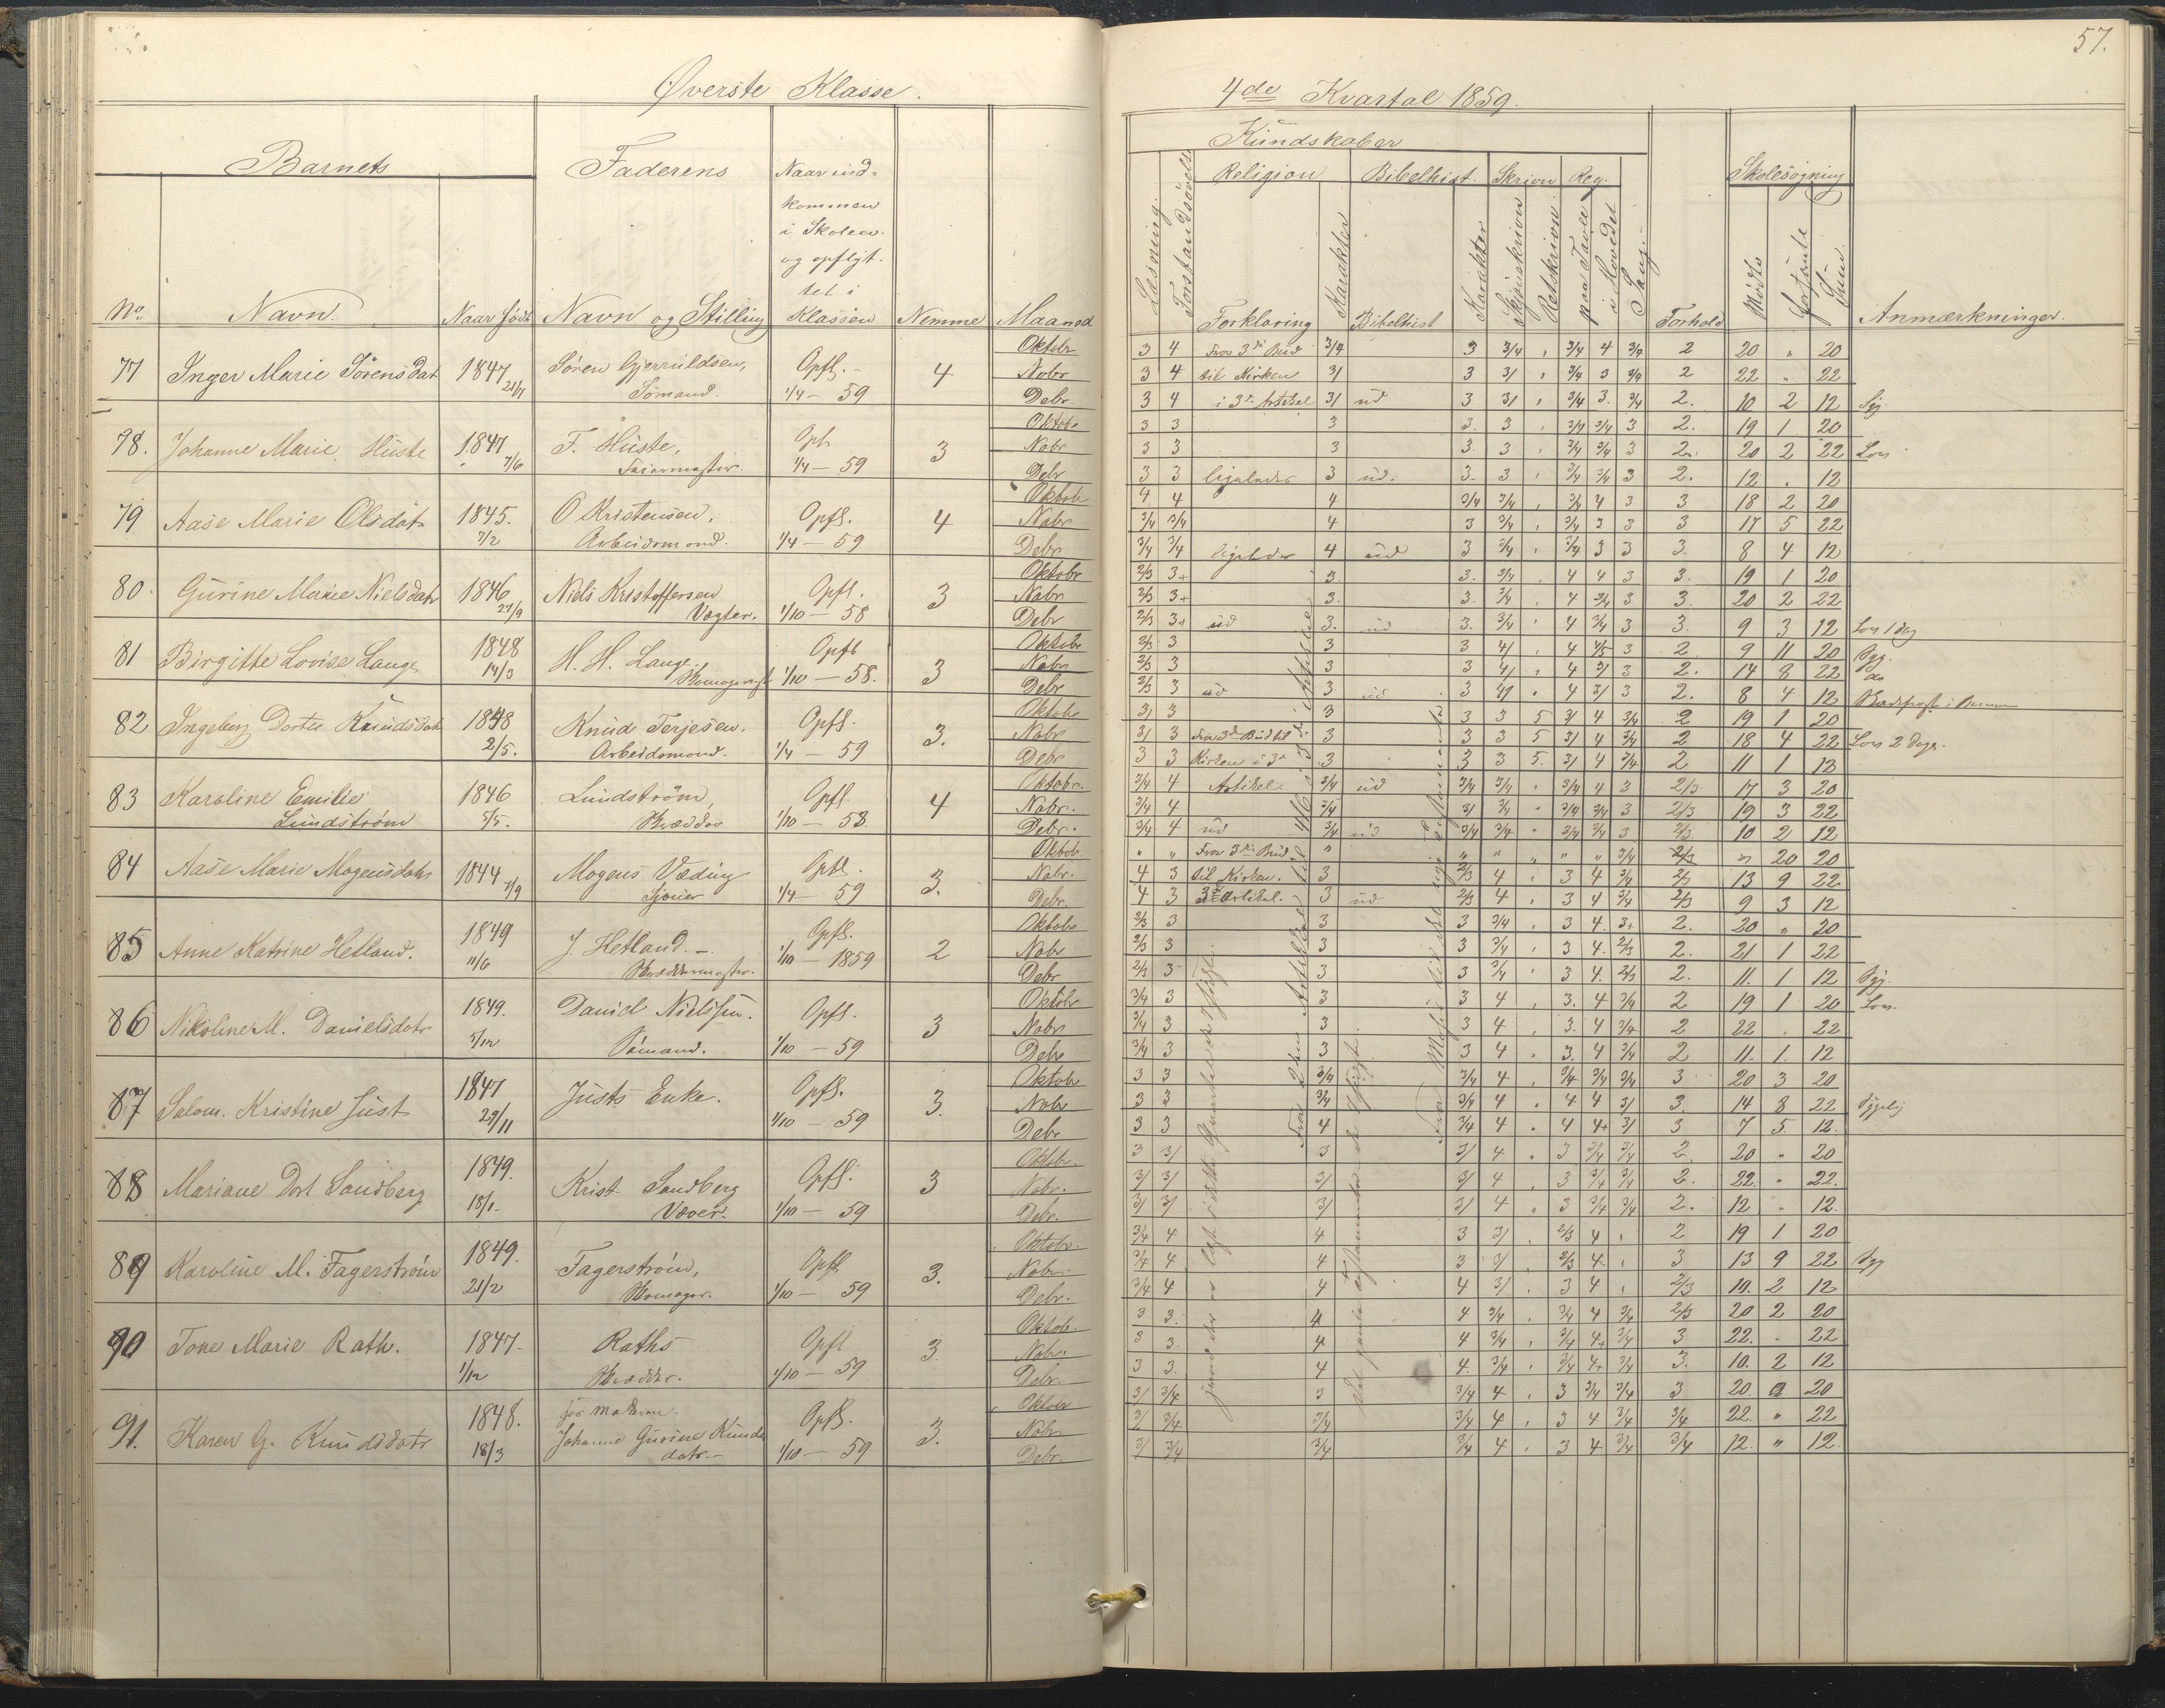 57.
Øverste Klasse.
4de Kvartal 1859.
Barnets
Faderens
Naar ind-
kommen
i Skolen
og opflyt-
tet i
Klassen
No. Navn. Naar født Navn og Stilling Nemme Maaned
Kundskaber
Religion Bibelhist. Skrivn Reg. Skolesøgning
Læsning. Forstandsøvelse Forklaring Karakter Bibelhist Karakter Skjønskrivn Retskrivn. paa Tavle i Hovedet Sang. Forhold Mødte forsømte Anmærkninger.
77 Inger Marie Sörensdat 1847 21/7 Sören Gjerruldsen, Sømand. Opfl. 1/4 - 59 4
Oktobr 3 4 Fra 3die Bud 3/4 3 3/4 " 3/4 4 3/4 2 20 " 20
Nobr 3 4 til Kirken 3/ 3 3/ " 3/4 3 3/4 2 22 " 22
Debr. 3 4 i 3die Artikel 3/ ud 3 3/ " 3/4 3. 3/4 2. 10 2 12 Syg
78. Johanne Marie Huste 1847 7/6 F. Huste, Opfl. 1/4 - 59 3
Oktobr 3 3 3 3. 3 " 3/4 3/4 3 2. 19 1 20
Nobr 3 3 3 3. 3 " 3/4 3/4 3 2. 20 2 22 Lov
Debr 3 3 ligeledes 3 ud. 3. 3 " 3/4 3/4 3 2. 12 . 12
79. Aase Marie Olsdat 1845. 7/2 O Kristensen, Arbeidsmand. Opfl. 1/4 - 59 4
Oktobr 4 4 4 3/4 3/4 " 3/4 4 3 3 18 2 20
Nobr 3/4 3/4 4 3 3/4 " 3/4 3 3 3 17 5 22
Debr 3/4 3/4 ligeledes 4 ud 3 3/4 " 3/4 3 3 3. 8 4 12
80. Gurine Marie Nielsdatr 1846 27/9 Niels Kristoffersen Vægter. Opfl. 1/10 - 58 3
Oktobr 2/3 3+ 3. 3. 3/4 " 4 4 3 3. 19 1 20
Nobr 2/3 3+ 3. 3. 3/4 " 4 3/4 3 3. 20 2 22
Debr 2/3 3+ ud 3. ud 3. 3/4 " 4 3/4 3 3. 9 3 12 Lov 1 dag
81 Birgitte Lovise Lange 1848 14/3 H. H. Lange. Opfl 1/10 - 58. 3
Oktobr 2/3 3 3 3 4/ " 4 4/5 3 2 9 11 20 Syg.
Nobr 2/3 3 3 3 4/ " 4 3/ 3 2. 14 8 22 do
Debr 2/3 3 ud 3 ud 3 4/ " 4 3/ 3 2. 8 4 12
82 Ingeborg Dortea Knudsdatr 1848 2/5. Knud Terjesen. Arbeidsmand. Opfl. 1/4 - 59 3.
Oktobr 3/ 3 3 3 3 5 3/ 4 3/4 2 19 1 20
Nobr 3/ 3 Fra 3de Bud til 3 3 3 5 3/ 4 3/4 2 18 4 22 Lov 2 Dage.
Debr 3 3 Kirken i 3die 3 3 3 5. 3/ 4 3/4 2 11 1 12
83 Karoline Emilie Lundström 1846 5/5. Lundström, Skrædder Opfl. 1/10 - 58. 4
Oktobr. 3/4 4 Artikel. 3/4 ud 3/4 3/4 " 3/4 4 3 2/3 17 3 20
Nobr. 3/4 4 3/4 3/ 3/4 " 3/4 3/4 3 2/3 19 3 22
Debr. 3/4 4 ud 3/4 ud 3/4 3/4 " 3/4 3/4 3 2/3 10 2 12
84 Aase Marie Mogensdatr 1844 7/9 Mogens Væding Opfl. 1/4 - 59 3.
Oktobr " " Fra 3die Bud " " " " " " 3/4 2/3 " 20 20
Nobr. 4 3 til Kirken. 3 2/3 4 " 3 4 3/4 2/3 13 9 22
Debr. 4 3 3die Artikel. 3 ud 2/3 4 " 3 4 3/4 2/3 9 3 12
85 Anne Katrine Hetland. 1849 11/6 J. Hetland. Opfl. 1/10 - 1859 2
Oktobr 2/3 3 3 3 3/4 " 3 4. 3+ 2. 20 " 20
Nobr 2/3 3 3 3 3/4 " 3 4. 2/3 2. 21 1 22
Debr 2/3 3 3 3 3/4 " 3 4. 2/3 2. 11. 1 12 Syg.
86 Nikoline M. Danielsdatr 1849. 3/12 Daniel Nielssen. Sømand. Opfl. 1/10 - 59 3
Oktobr 3/4 3 3 3 4 " 3. 4 3/4 2 19 1 20 Lov.
Nobr 3/4 3 3 3 4 " 3. 4 3/4 2 22 . 22
Debr 3/4 3 3 3 4 " 3. 4 3/4 2 11. 1. 12
87 Salom. Kristine Just 1847 29/11 Justs Enke. Opfl. 1/10 - 59 3.
Oktobr 3 3 3/4 3/4 4 " 3/4 3/4 3/4 3 20 3 20
Nobr 3 3 3/4 3/4 4 " 4 4 3/ 3. 14 8 22 Sygelig
Debr 3 3 4 3/4 4 " 4 4+ 3/ 3 7 5 12.
88 Mariane Dort Sandberg 1849. 18/1. Krist. Sandberg Væver. Opfl. 1/10 - 59 3
Oktbr. 3 3/ 3 3/ 4 " 3 3/4 3/4 2. 20 " 20
Nobr. 3/ 3/ 3/ 3/ 4 " 3 3/4 3/4 2. 22. " 22.
Debr. 3/ 3/ 3/ 3/ 4 " 3 3/4 3/4 2. 12 " 12.
89 Karoline M. Fagerström 1849. 21/2 Fagerström, Opfl. 1/10 - 59 3.
Oktobr. 3/4 4 4 3 3/ " 2/3 4 " 2 19 1 20
Nobr. 3/4 4 4 3 3/ " 2/3 4 " 3 13 9 22 Syg
Debr. 3/4 4 4 4 3/ " 3 4 " 2/3 10. 2 12
90 Tone Marie Rath. 1847 1/12 Raths Skrædder. Opfl 1/10 - 59 3.
Oktob. 3 3. 4 4 3/4 " 3/4 4 3/4 2/3 20 2 20
Nobr. 3 3. 4 4 3/4 " 3/4 4+ 3/4 3 22. . 22
Debr. 3 3. 4 4. 3/4 " 3/4 4+ 3/4 3. 10. 2 12
91. Karen G. Knudsdatr 1848. 18/3 Johanne Gurine Knuds datr. Opfl. 1/10 - 59 3.
Oktobr 3/ 3/4 3 3/4 4 " 3 3/4 3/4 3 20. 20
Nobr 3/ 3/4 3/4 3/4 4 " 3 4 3/4 3/4 22. " 22
Debr. 3/ 3/4 3/4 3/4 4 " 3 4 3/4 3/4 12. " 12